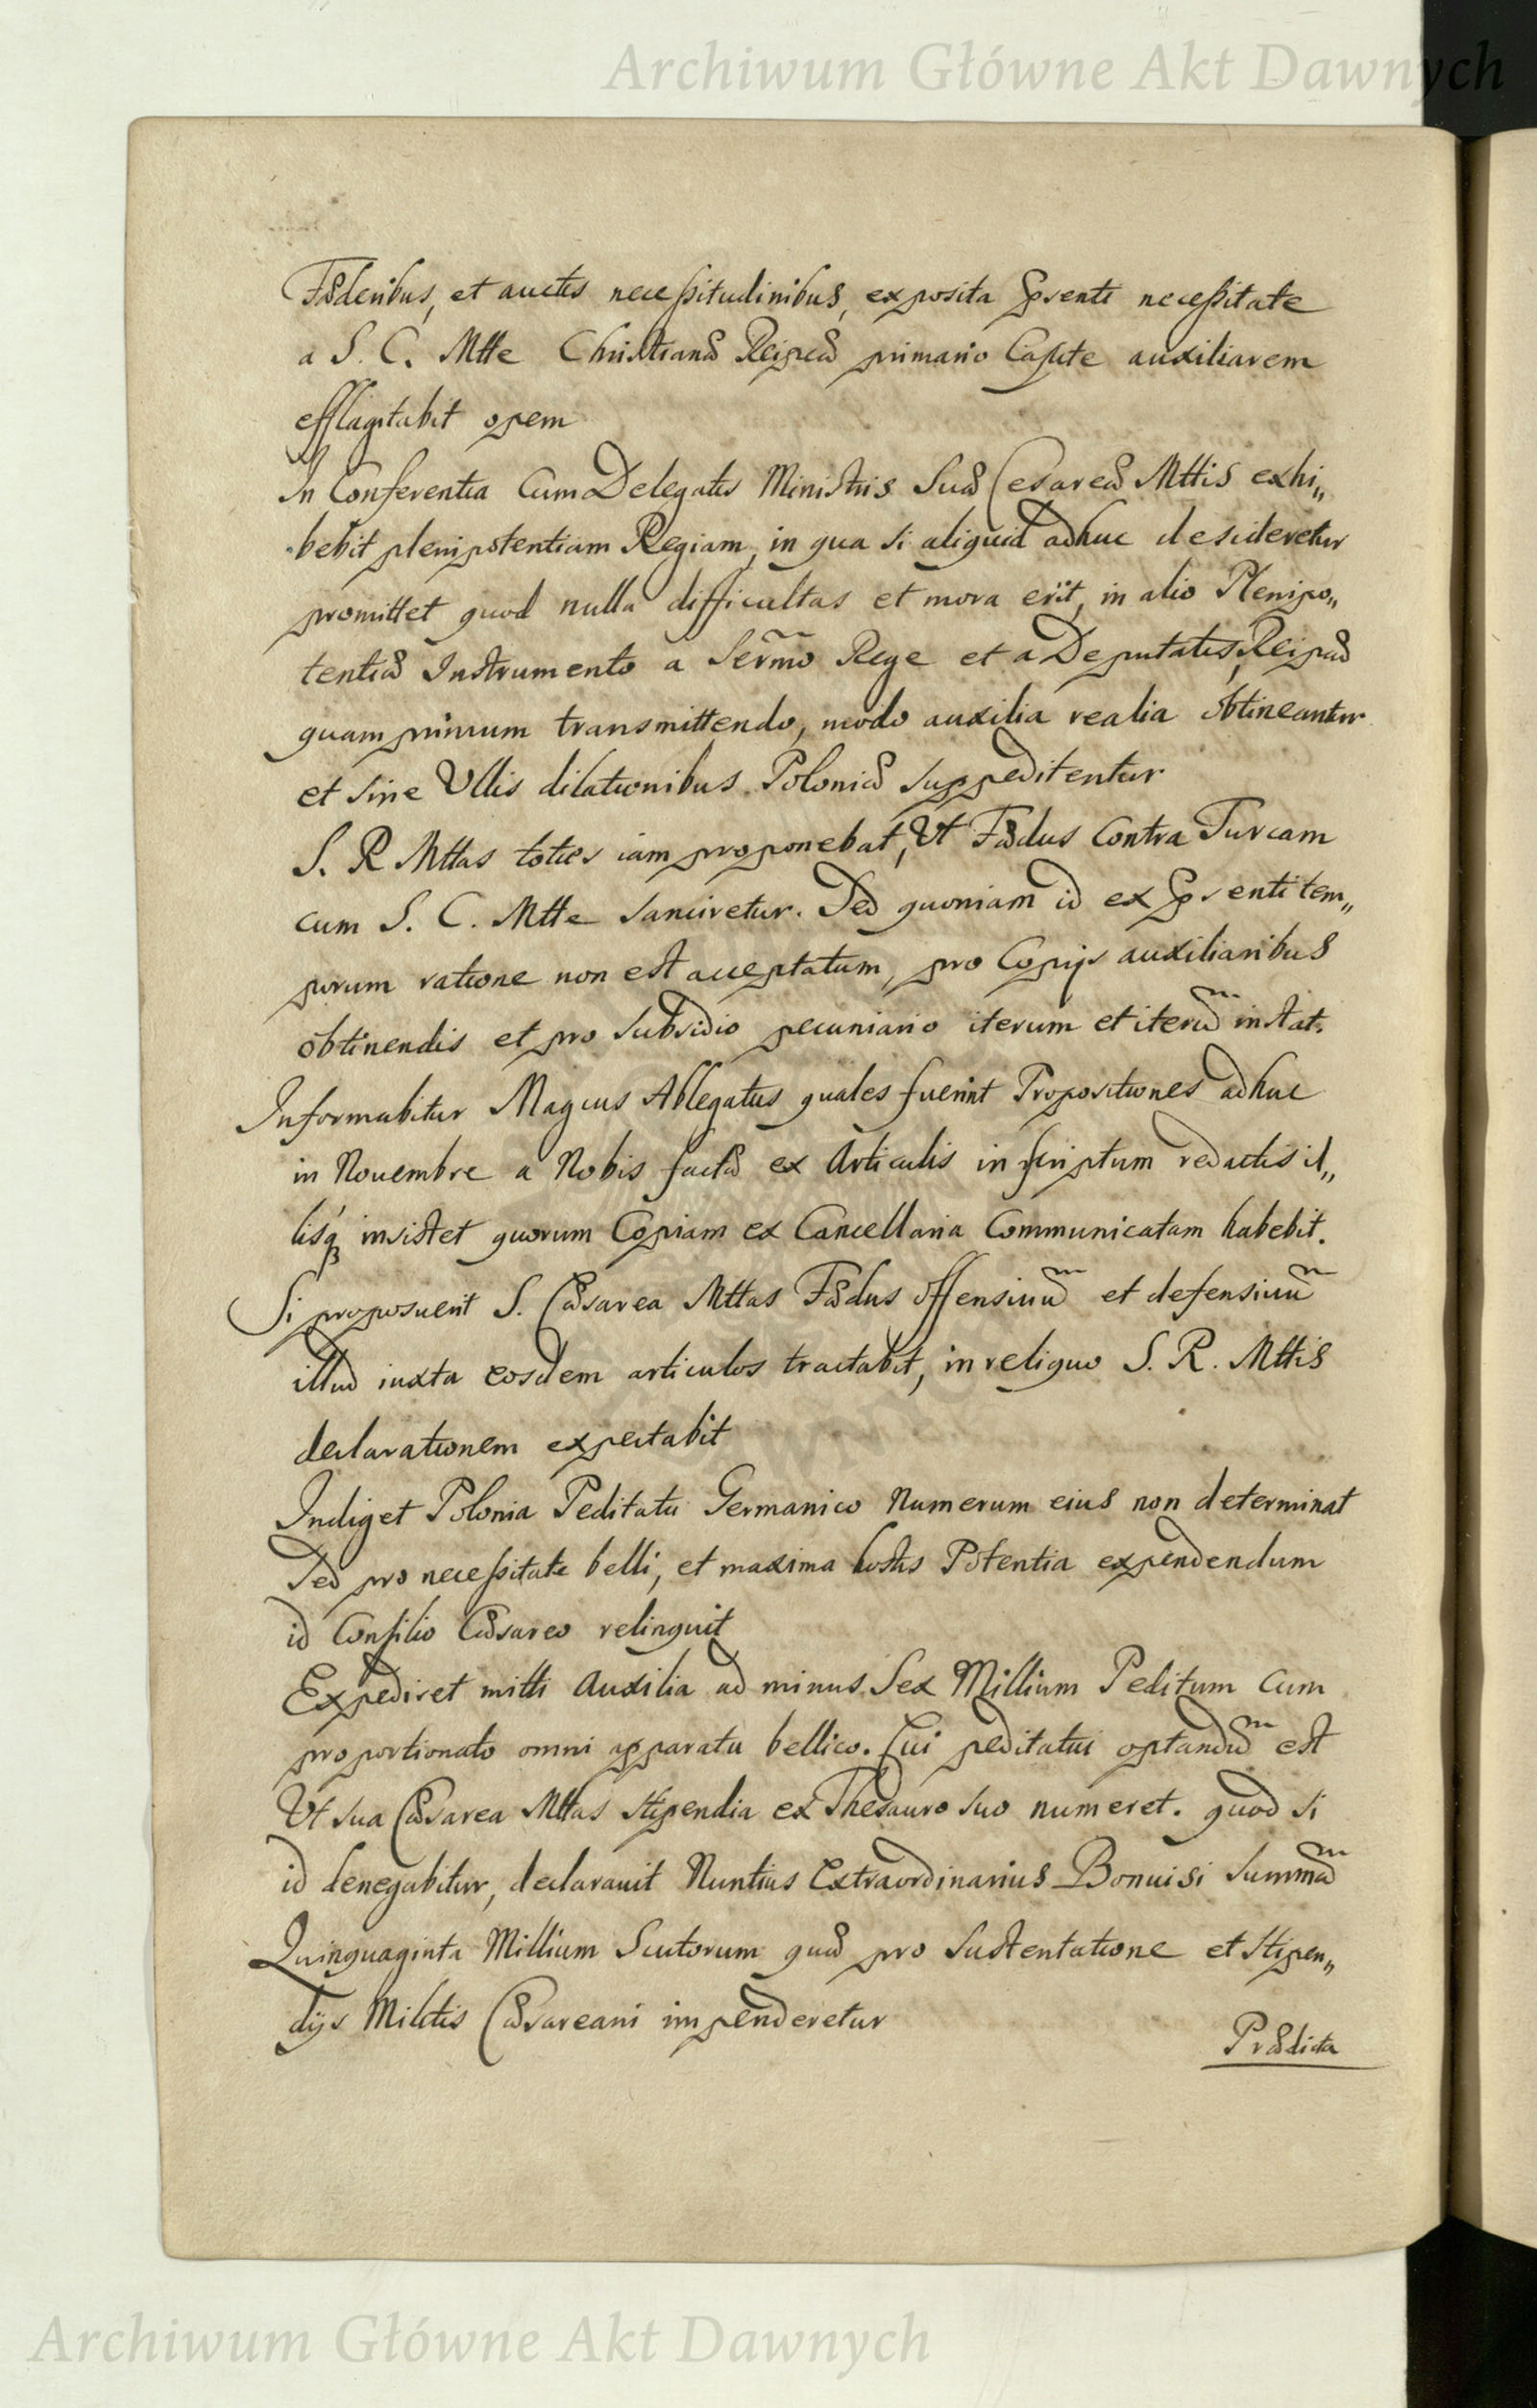 Archiwum Główne Akt Dawnych
Fæderibus, et auctis necessitudinibus, exposita Pnti necessitate
a S. C. Mtte Christianæ Reipcæ primario Capite auxiliarem
efflagitabit opem
In Conferentia Cum Delegatis Ministris Suæ Cesareæ Mttis exhi„
bebit plenipotentiam Regiam, in qua si aliquid adhuc desideretur
promittet quod nulla difficultas et mora erit, in alio Plenipo„
tentiæ Instrumento a Sermo Rege et a Deputatis, Reipcæ
quam primum transmittendo, modo auxilia realia obtineantur
et sine Ullis dilationibus Poloniæ suppeditentur
S. R Mttas toties iam proponebat, Ut Fædus Contra Turcam
cum S. C. Mtte sanciretur. Sed quoniam id ex Psenti tem„
porum ratione non est acceptatum, pro Copijs auxiliaribus
obtinendis et pro subsidio pecuniario iterum et iterū instat.
Informabitur Magcus Ablegatus quales fuerint Propositiones adhuc
in Nouembre a Nobis factæ ex Articulis in scriptum redactis il„
lisq insistet quorum Copiam ex Cancellaria Communicatam habebit.
Si proposuerit S. Cæsarea Mttas Fædus offensiuū et defensiuū
illud iuxta eosdem articulos tractabit, in reliquo S. R. Mttis
declarationem expectabit
Indiget Polonia Peditatu Germanico Numerum eius non determinat
Sed pro necessitate belli, et maxima hostis Potentia expendendum
id Consilio Cæsareo relinquit
Expediret mitti Auxilia ad minus Sex Millium Peditum Cum
proportionato omni apparatu bellico. Cui peditatui optandū est
Ut sua Cæsarea Mttas stipendia ex Thesauro suo numeret. quod si
id denegabitur, declarauit Nuntius Extraordinarius Bonuisi summā
Quinquaginta Millium Scutorum quæ pro sustentatione et stipen„
dijs Militis Cæsareani impenderetur
Prædicta
Archiwum Główne Akt Dawnych